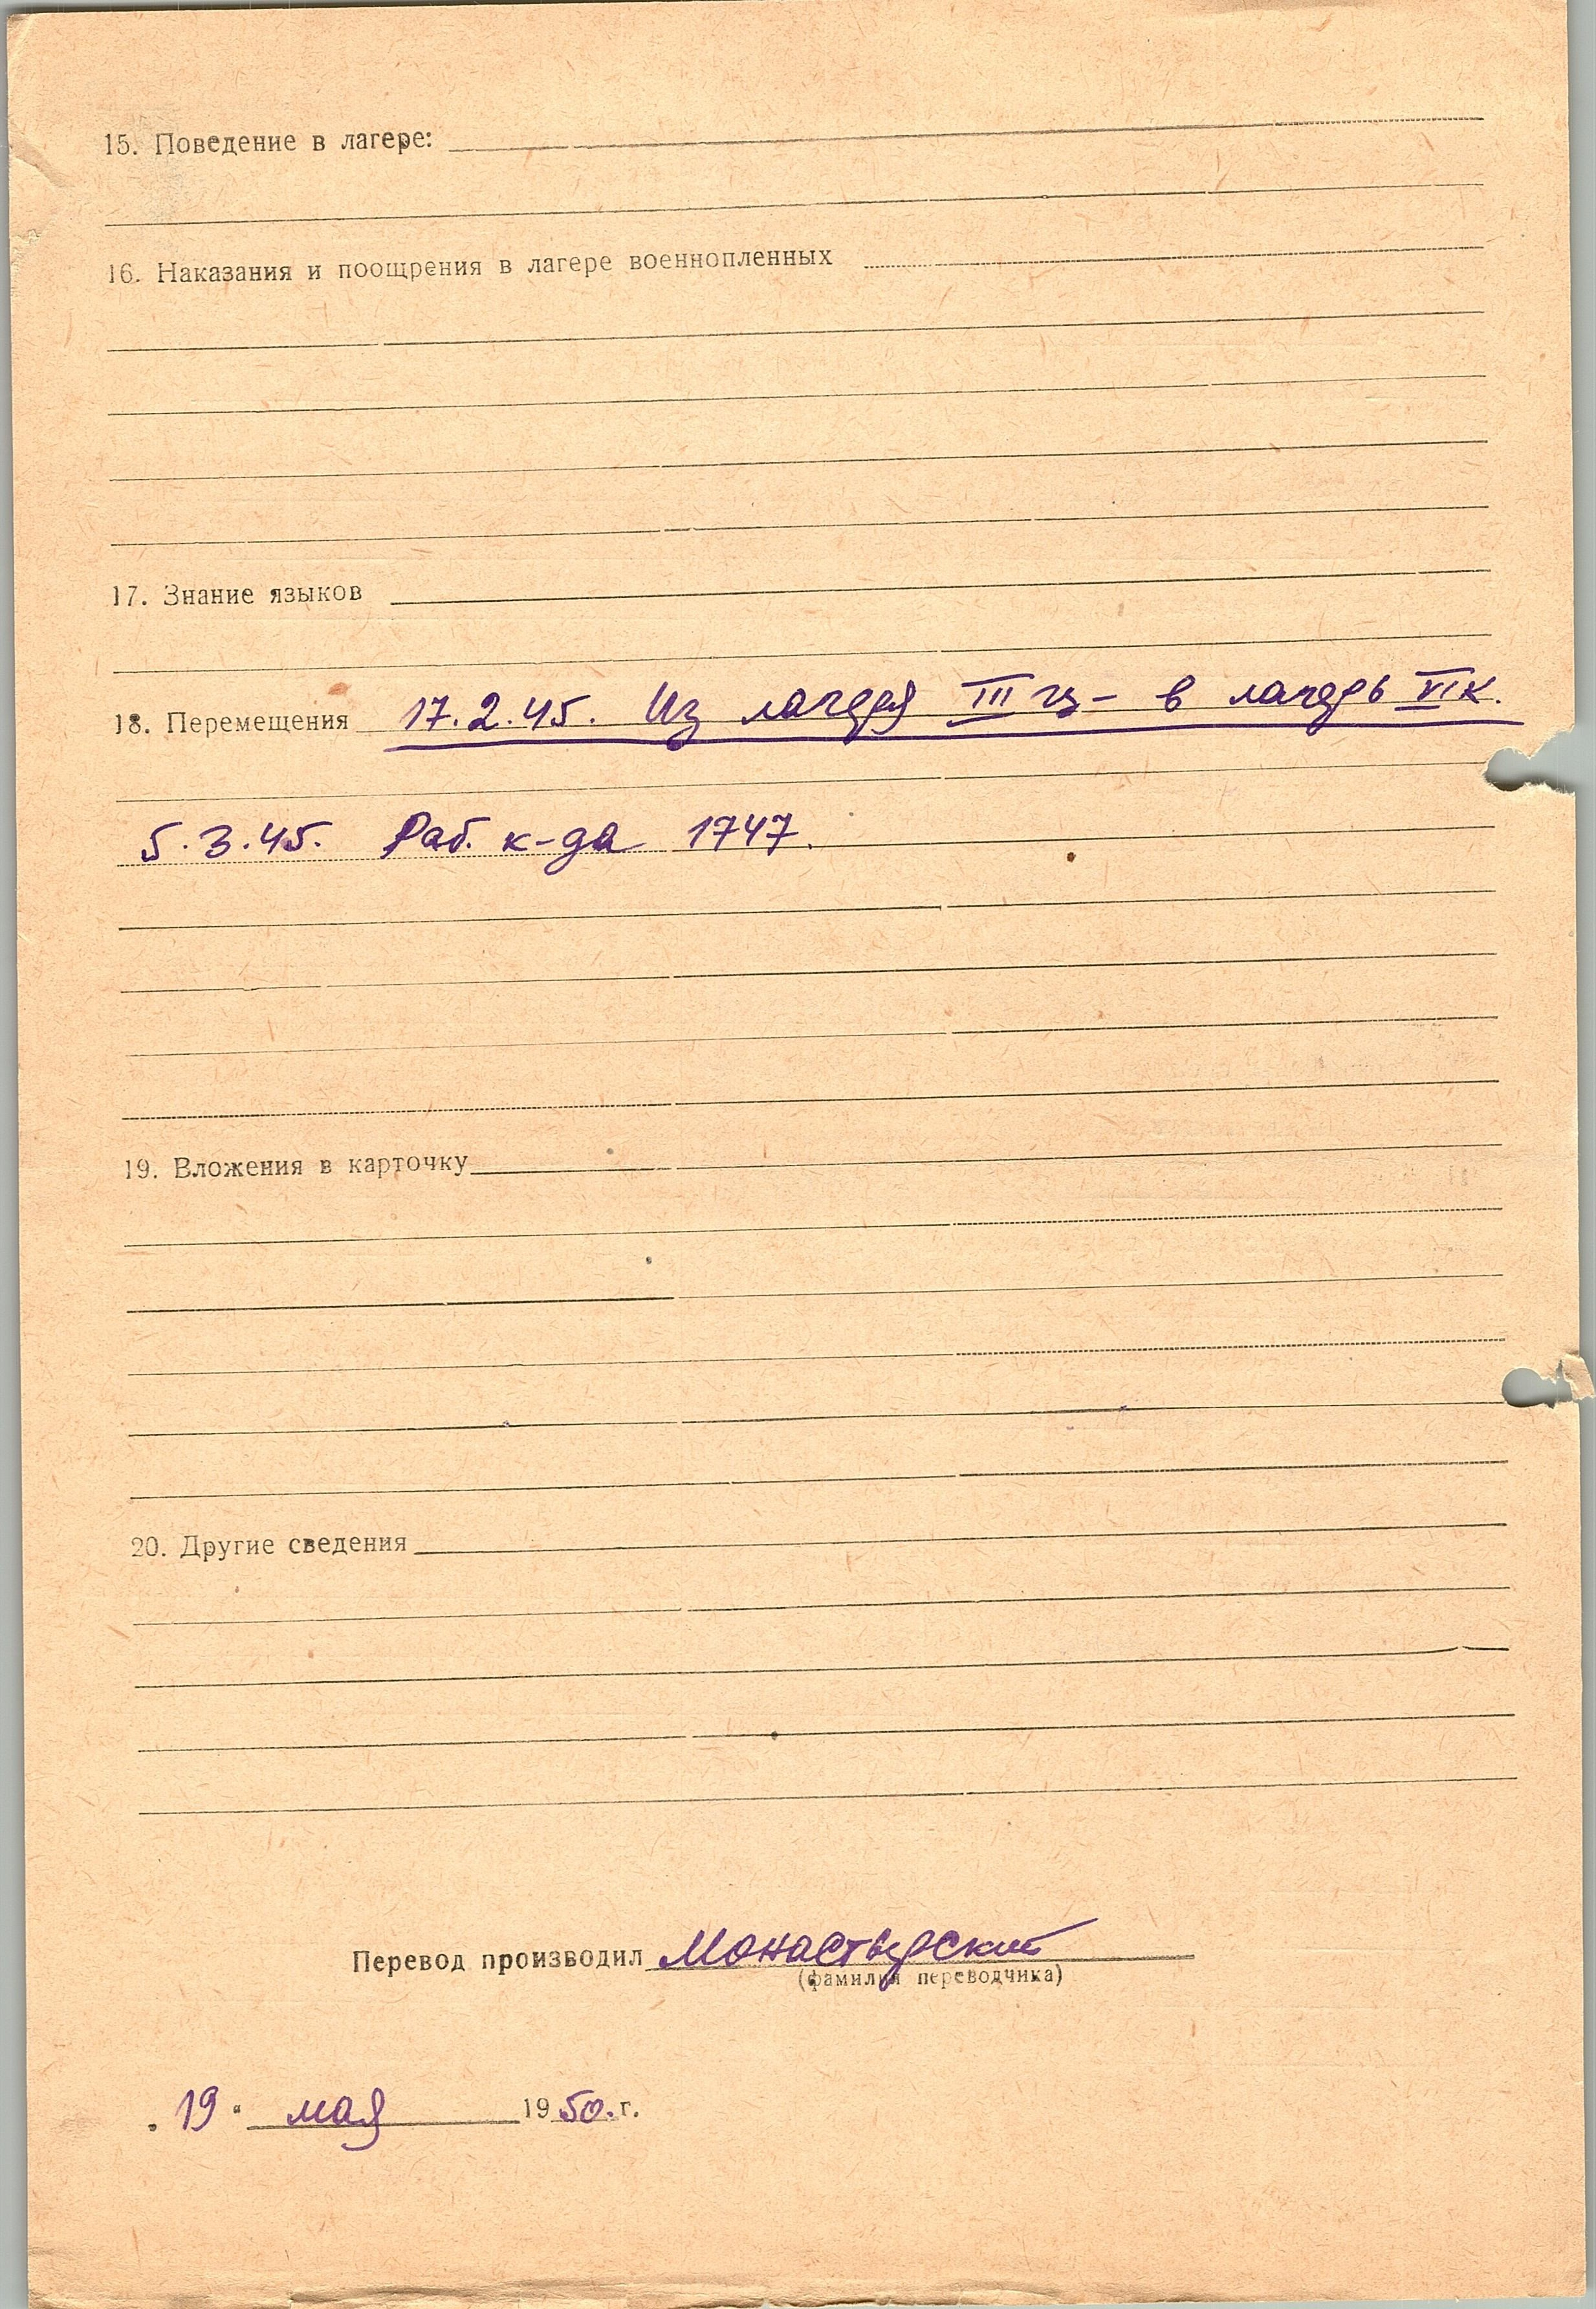 15. Поведение в лагере:
16. Наказания и поощрения в лагере военнопленных
17. Знание языков
18. Перемещения 17.2.45. Из лагеря III гц- в лагерь VI К.
5.3.45. Раб. к-да 1747.
19. Вложения в карточку
20. Другие сведения
Перевод производил Монастырский
(фамилия переводчика)
„ 19 “ мая 1950. г.